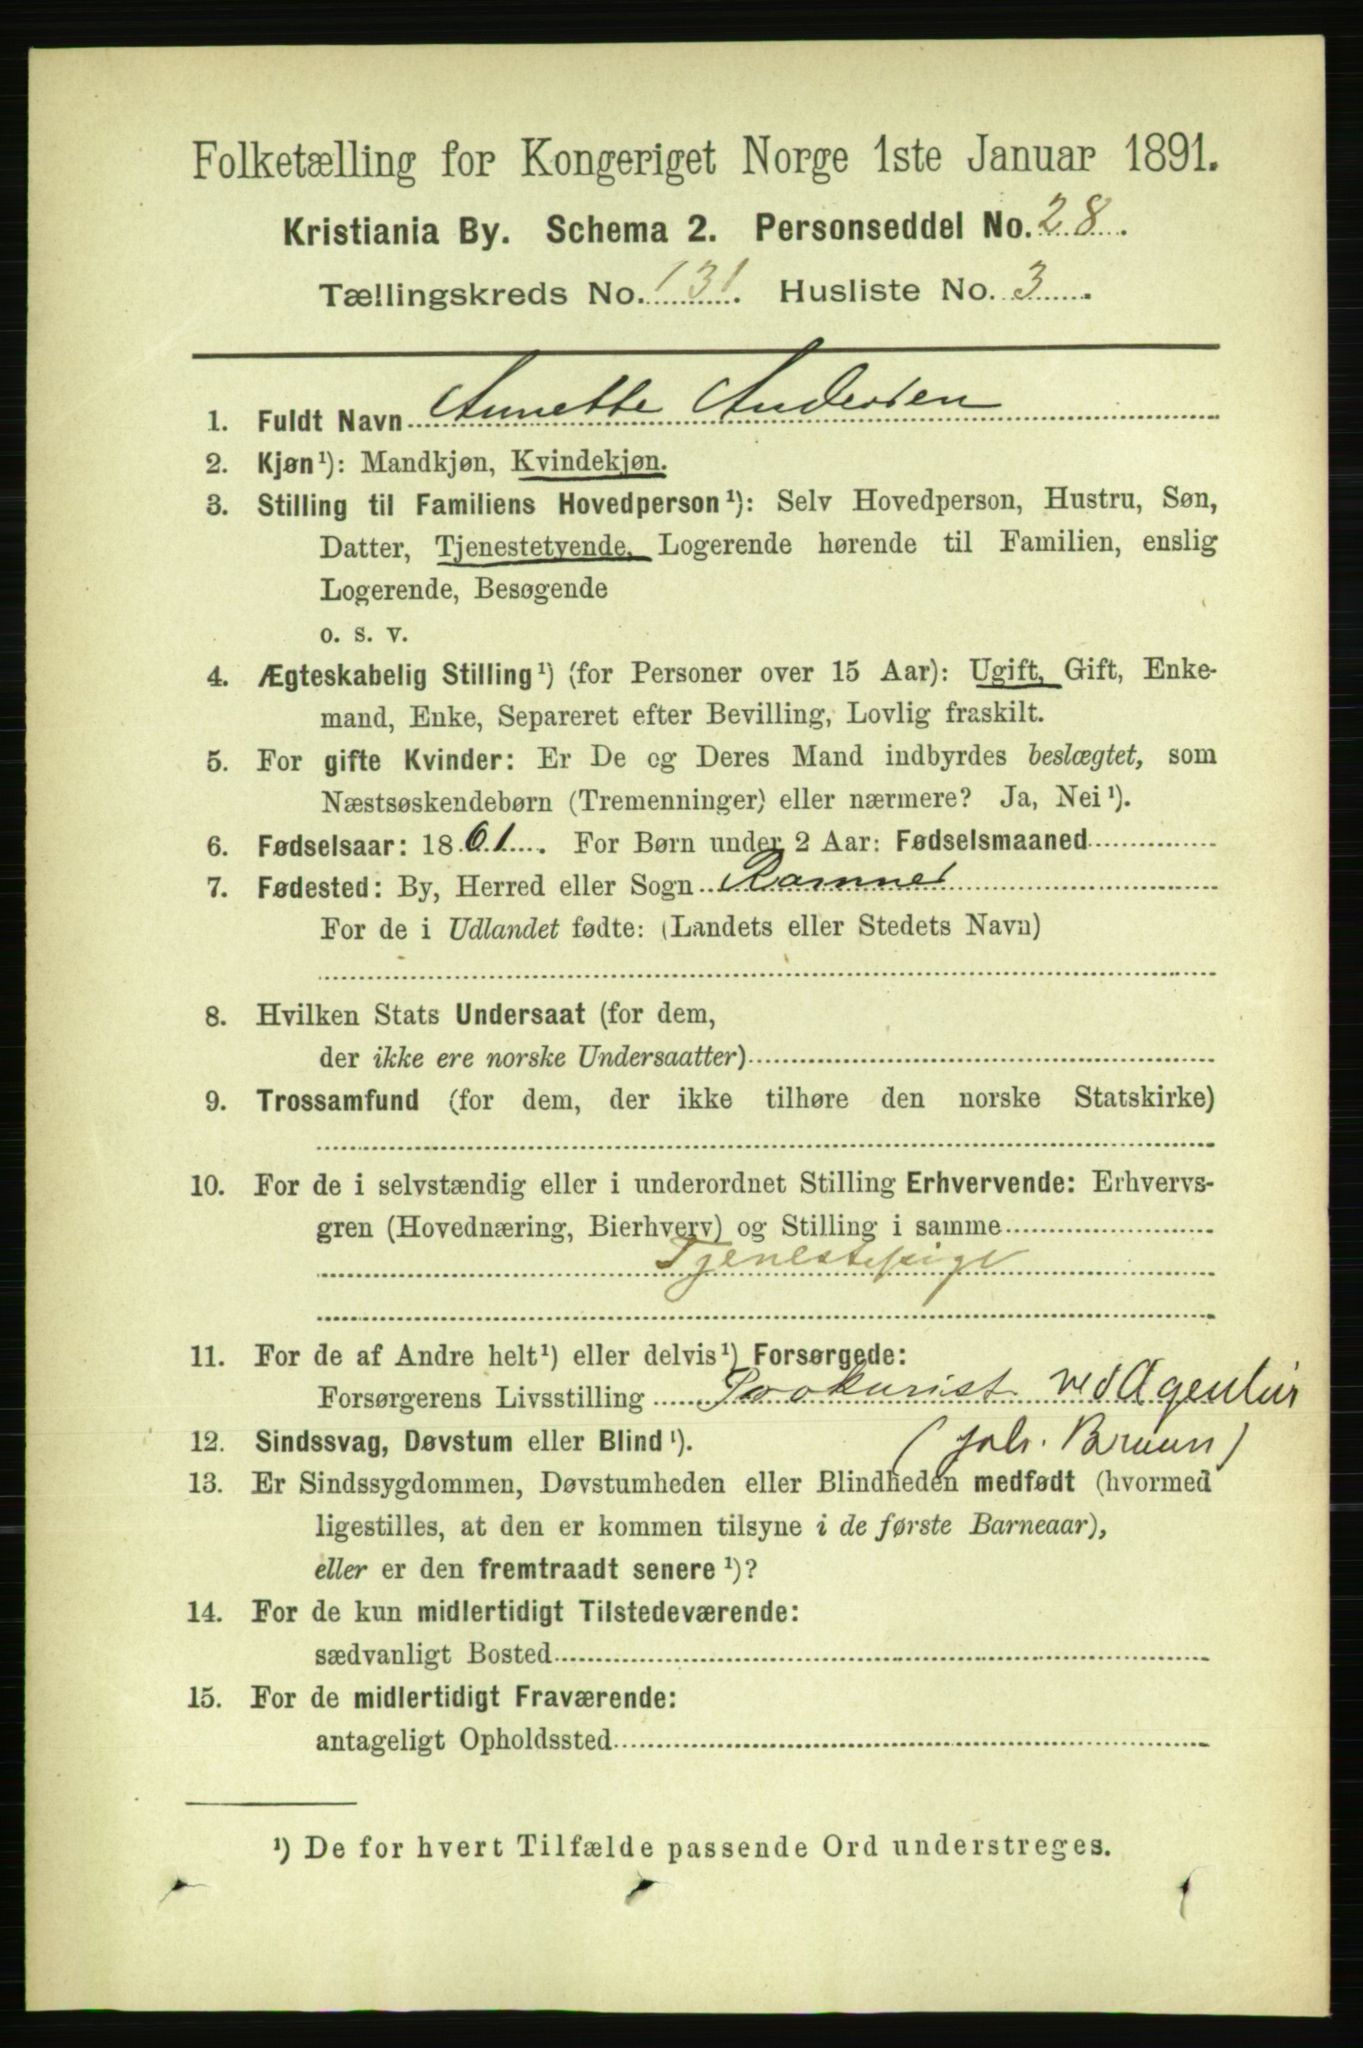 Folketælling for Kongeriget Norge 1ste Januar 1891.
Kristiania By. Schema 2. Personseddel No. 28.
Tællingskreds No. 131. Husliste No. 3.
1. Fuldt Navn Annette Andersen
2. Kjøn¹): Mandkjøn, Kvindekjøn.
3. Stilling til Familiens Hovedperson¹): Selv Hovedperson, Hustru, Søn,
Datter, Tjenestetyende, Logerende hørende til Familien, enslig
Logerende, Besøgende
o. s. v.
4. Ægteskabelig Stilling¹) (for Personer over 15 Aar): Ugift, Gift, Enke-
mand, Enke, Separeret efter Bevilling, Lovlig fraskilt.
5. For gifte Kvinder: Er De og Deres Mand indbyrdes beslægtet, som
Næstsøskendebørn (Tremenninger) eller nærmere? Ja, Nei¹).
6. Fødselsaar: 1861. For Børn under 2 Aar: Fødselsmaaned
7. Fødested: By, Herred eller Sogn Ramnes
For de i Udlandet fødte: (Landets eller Stedets Navn)
8. Hvilken Stats Undersaat (for dem,
der ikke ere norske Undersaatter)
9. Trossamfund (for dem, der ikke tilhøre den norske Statskirke)
10. For de i selvstændig eller i underordnet Stilling Erhvervende: Erhvervs-
gren (Hovednæring, Bierhverv) og Stilling i samme
Tjenestepige
11. For de af Andre helt¹) eller delvis¹) Forsørgede:
Forsørgerens Livsstilling Prokurist ved Agentur
12. Sindssvag, Døvstum eller Blind¹). (Joh. Bruun)
13. Er Sindssygdommen, Døvstumheden eller Blindheden medfødt (hvormed
ligestilles, at den er kommen tilsyne i de første Barneaar),
eller er den fremtraadt senere¹)?
14. For de kun midlertidigt Tilstedeværende:
sædvanligt Bosted
15. For de midlertidigt Fraværende:
antageligt Opholdssted
¹) De for hvert Tilfælde passende Ord understreges.